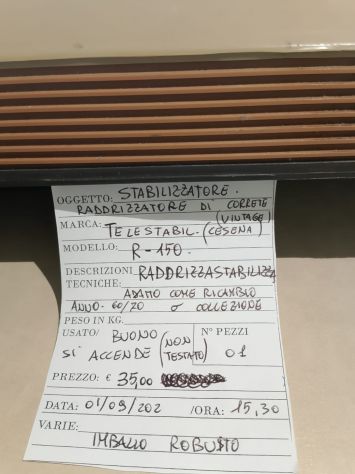 OGGETTO: STABILIZZATORE.
RADDRIZZATORE DI CORRETE
(VINTAGE)
MARCA: TELESTABIL. (CESENA)
MODELLO: R-150.
DESCRIZIONI RADDRIZZASTABILIZZ
TECNICHE:
ADATTO COME RICAMBIO
ANNO. 60/70 O COLLEZIONE
PESO IN KG.
USATO/ BUONO (NON TESTATO)
SI ACCENDE
N° PEZZI
01
PREZZO: € 35,00
DATA: 01/09/202 /ORA: 15,30
VARIE:
IMBALLO ROBUSTO